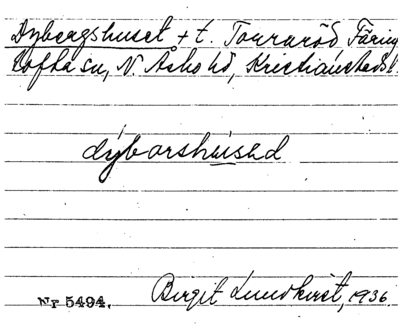 Dybergshuset + t. Touraröd Färing
tofta sn, N. Åsbo hd, Kristianstads l.
dýborshused
Nr 5494. Birgit Lundkvist, 1936.